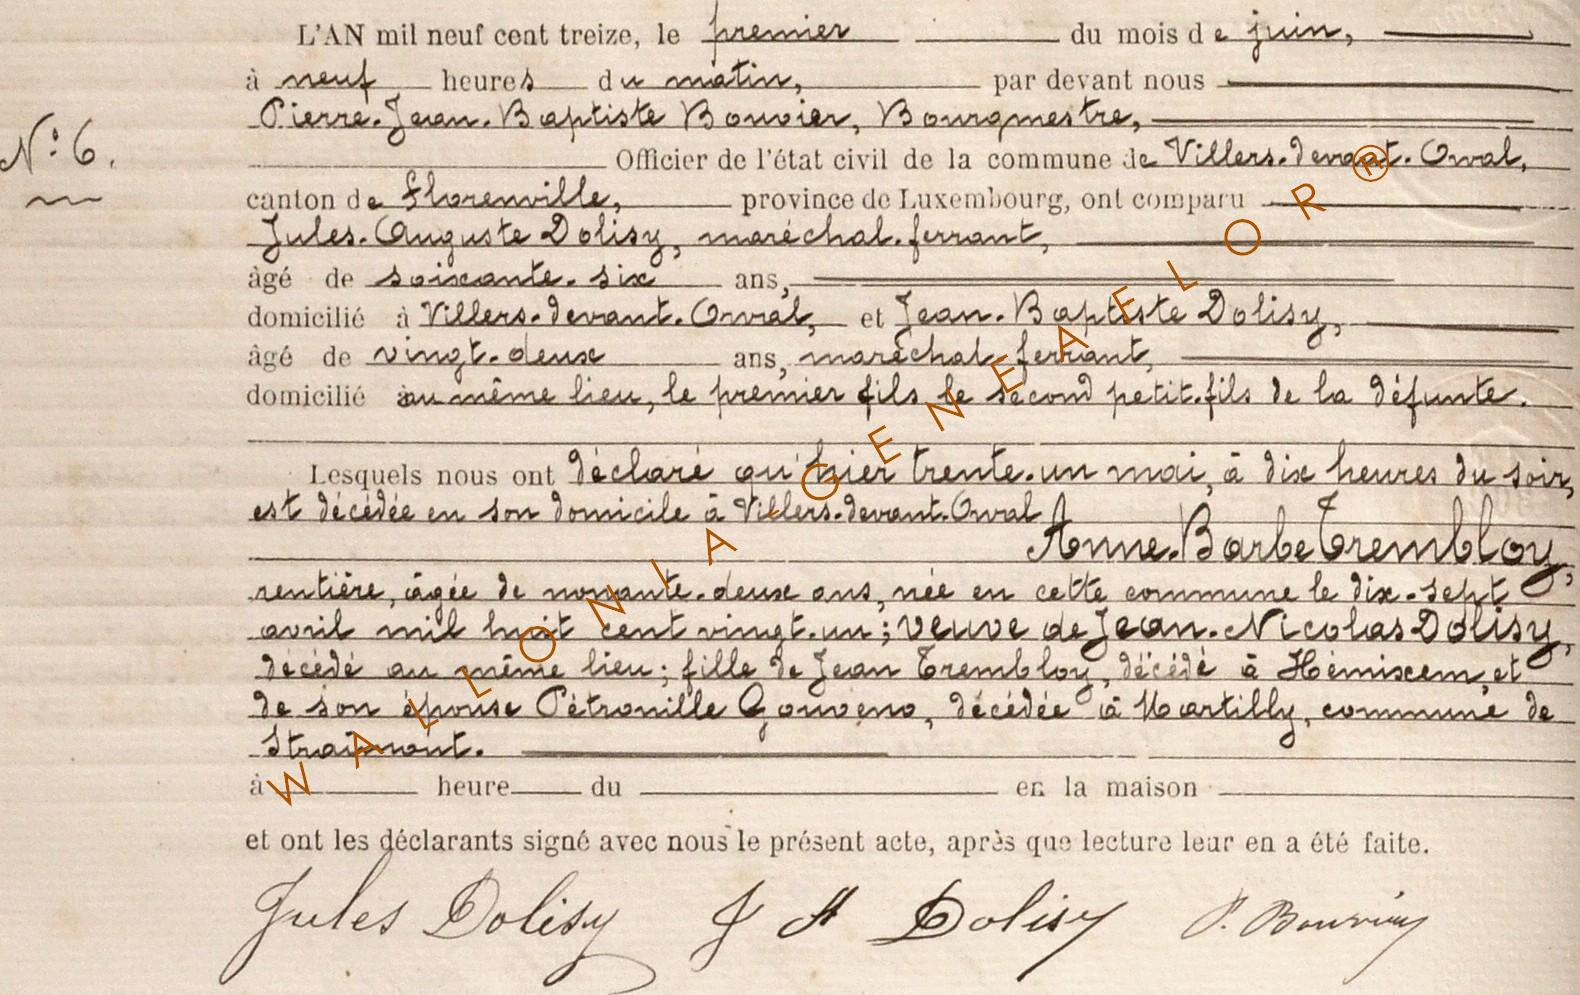 L'AN mil neuf cent treize, le premier du mois de juin,
à neuf heures du matin, par devant nous
Pierre-Jean-Baptiste Bouvier, Bourgmestre,
N° 6.
Officier de l'état civil de la commune de Villers-devant-Orval,
canton de Florenville, province de Luxembourg, ont comparu
Jules-Auguste Dolisy, maréchal-ferrant,
âgé de soixante-six ans,
domicilié à Villers-devant-Orval, et Jean-Baptiste Dolisy,
âgé de vingt-deux ans, maréchal-ferrant,
domicilié au même lieu, le premier fils le second petit-fils de la défunte.
Lesquels nous ont déclaré qu'hier trente-un mai, à dix heures du soir,
est décédée en son domicile à Villers-devant-Orval
Anne-Barbe Trembloy,
rentière, âgée de nonante-deux ans, née en cette commune le dix-sept
avril mil huit cent vingt-un; veuve de Jean-Nicolas Dolisy,
décédé au même lieu; fille de Jean Trembloy, décédé à Hémixem, et
de son épouse Pétronille Gouveno, décédée à Martilly, commune de
Straimont.
à heure du en la maison
et ont les déclarants signé avec nous le présent acte, après que lecture leur en a été faite.
Jules Dolisy J B Dolisy P. Bouvier
WALLONIA GENEAELOR ®